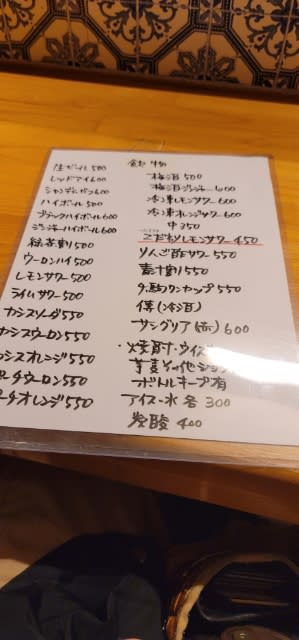 飲物
生ビール 500
レッドアイ 600
シャンディガフ 600
ハイボール 500
ブラックハイボール 600
ジンジャーハイボール 600
緑茶割 500
ウーロンハイ 500
レモンサワー 500
ライムサワー 500
カシスソーダ 550
カシスウーロン 550
シスオレンジ 550
ーチウーロン 550
ーチオレンジ 550
梅酒 500
梅酒ジンジャー 600
冷凍レモンサワー 600
冷凍オレンジサワー 600
中 350
こだわりレモンサワー 450
りんご酢サワー 550
麦汁割 550
カップ 550
(冷酒)
サングリア(赤) 600
・焼酎・ウイス
芋麦
ボトルキープ有
アイス・水 各 300
炭酸 400